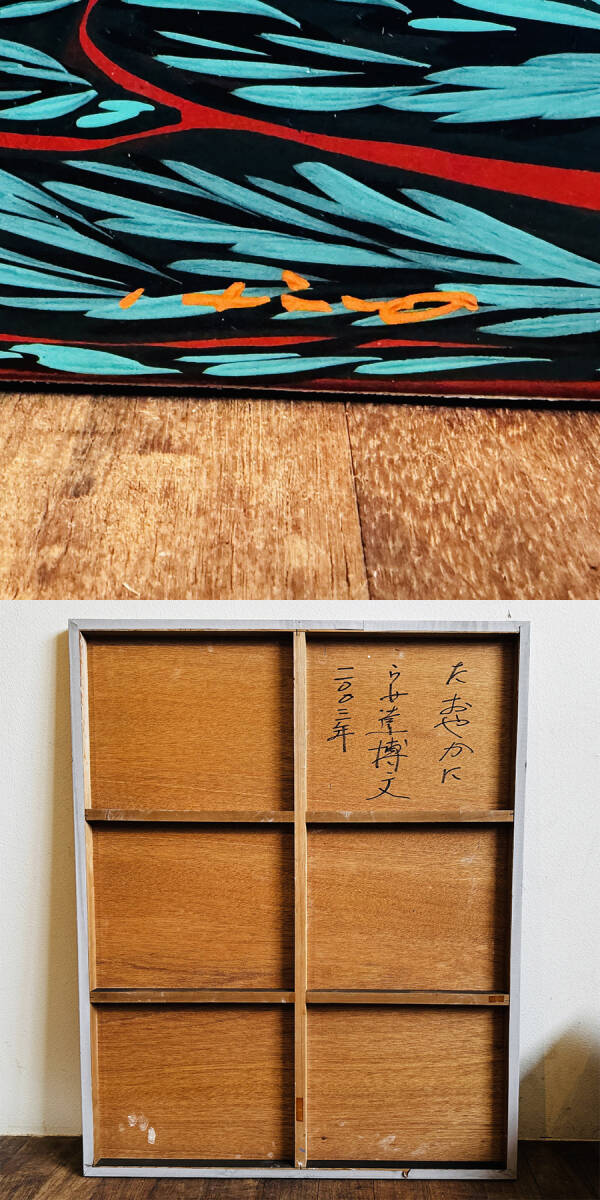 たおやかに
らせ達博文
二〇〇二年